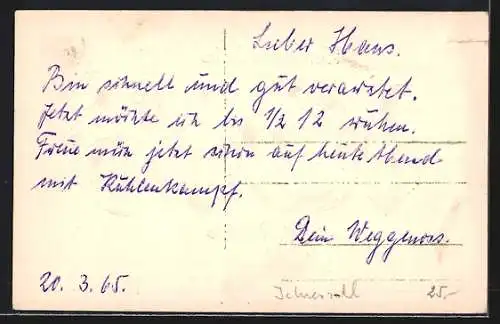 Lieber Hans.
Bin schnell und gut verarztet.
Jetzt möchte ich bis 1/2 12 ruhen.
Freue mich jetzt schon auf heute Abend
mit Kuhlenkampf.
Dein Weggenoss.
20. 3. 65.
25.-